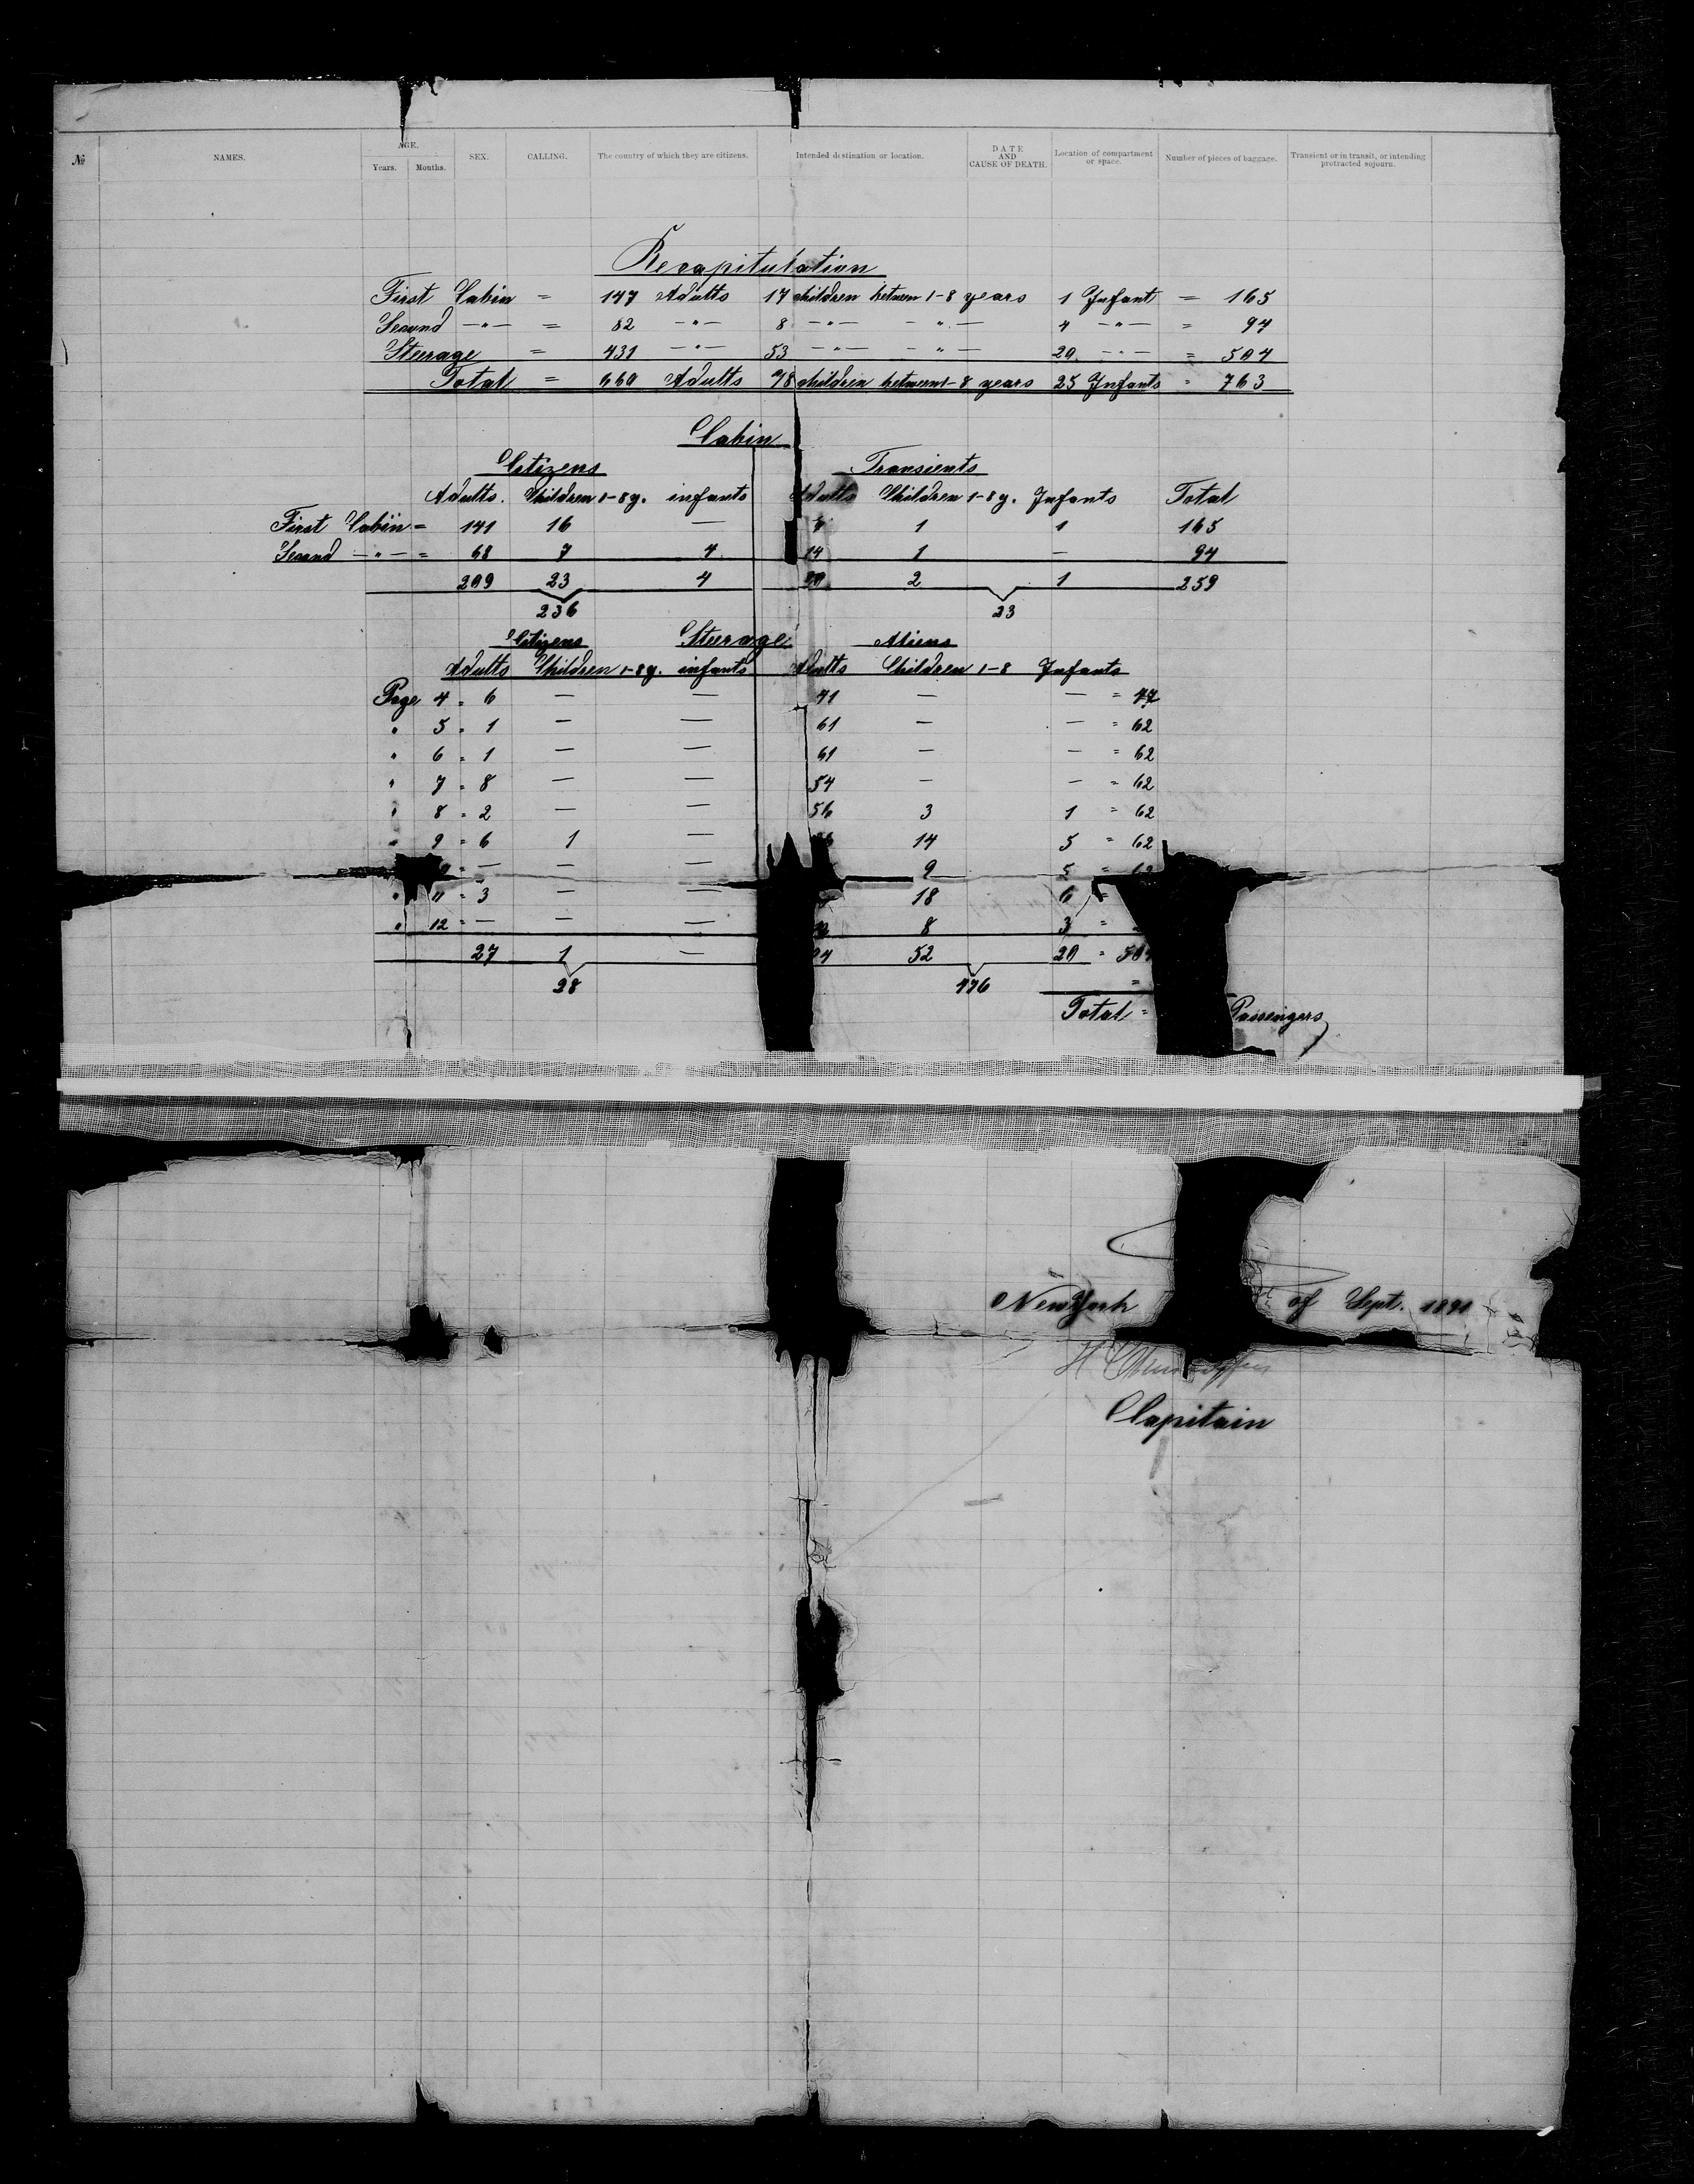 № NAMES. AGE. Years. Months. SEX. CALLING. The country of which they are citizens. Intended destination or location. DATE AND CAUSE OF DEATH. Location of compartment or space. Number of pieces of baggage. Transient or in transit, or intending protracted sojourn.
Recapitulation
First Cabin = 147 Adults 17 children between 1-8 years 1 Infant = 165
Second —"— = 82 —"— 8 —"— —"— 4 —"— = 94
Steerage = 431 —"— 53 —"— —"— 20 —"— = 504
Total = 660 Adults 78 children between 1-8 years 25 Infants = 763
Cabin
Citizens Transients
Adults. Children 1-8 y. infants Adults Children 1-8 y. Infants Total
First Cabin = 141 16 — 6 1 1 165
Second —"— = 68 7 4 14 1 — 94
209 23 4 20 2 1 259
236 23
Citizens Steerage Aliens
Adults Children 1-8 y. infants Adults Children 1-8 Infants
Page 4 = 6 — — 41 — — = 47
" 5 = 1 — — 61 — — = 62
" 6 = 1 — — 61 — — = 62
" 7 = 8 — — 54 — — = 62
" 8 = 2 — — 56 3 1 = 62
" 9 = 6 1 — 14 5 = 62
— — — 9 5 =
" 11 = 3 — — 18 6 =
" 12 = — — — 8 3 =
27 1 — 52 20 = 504
28 476
Total = Passengers
New York of Sept. 1891
Capitain